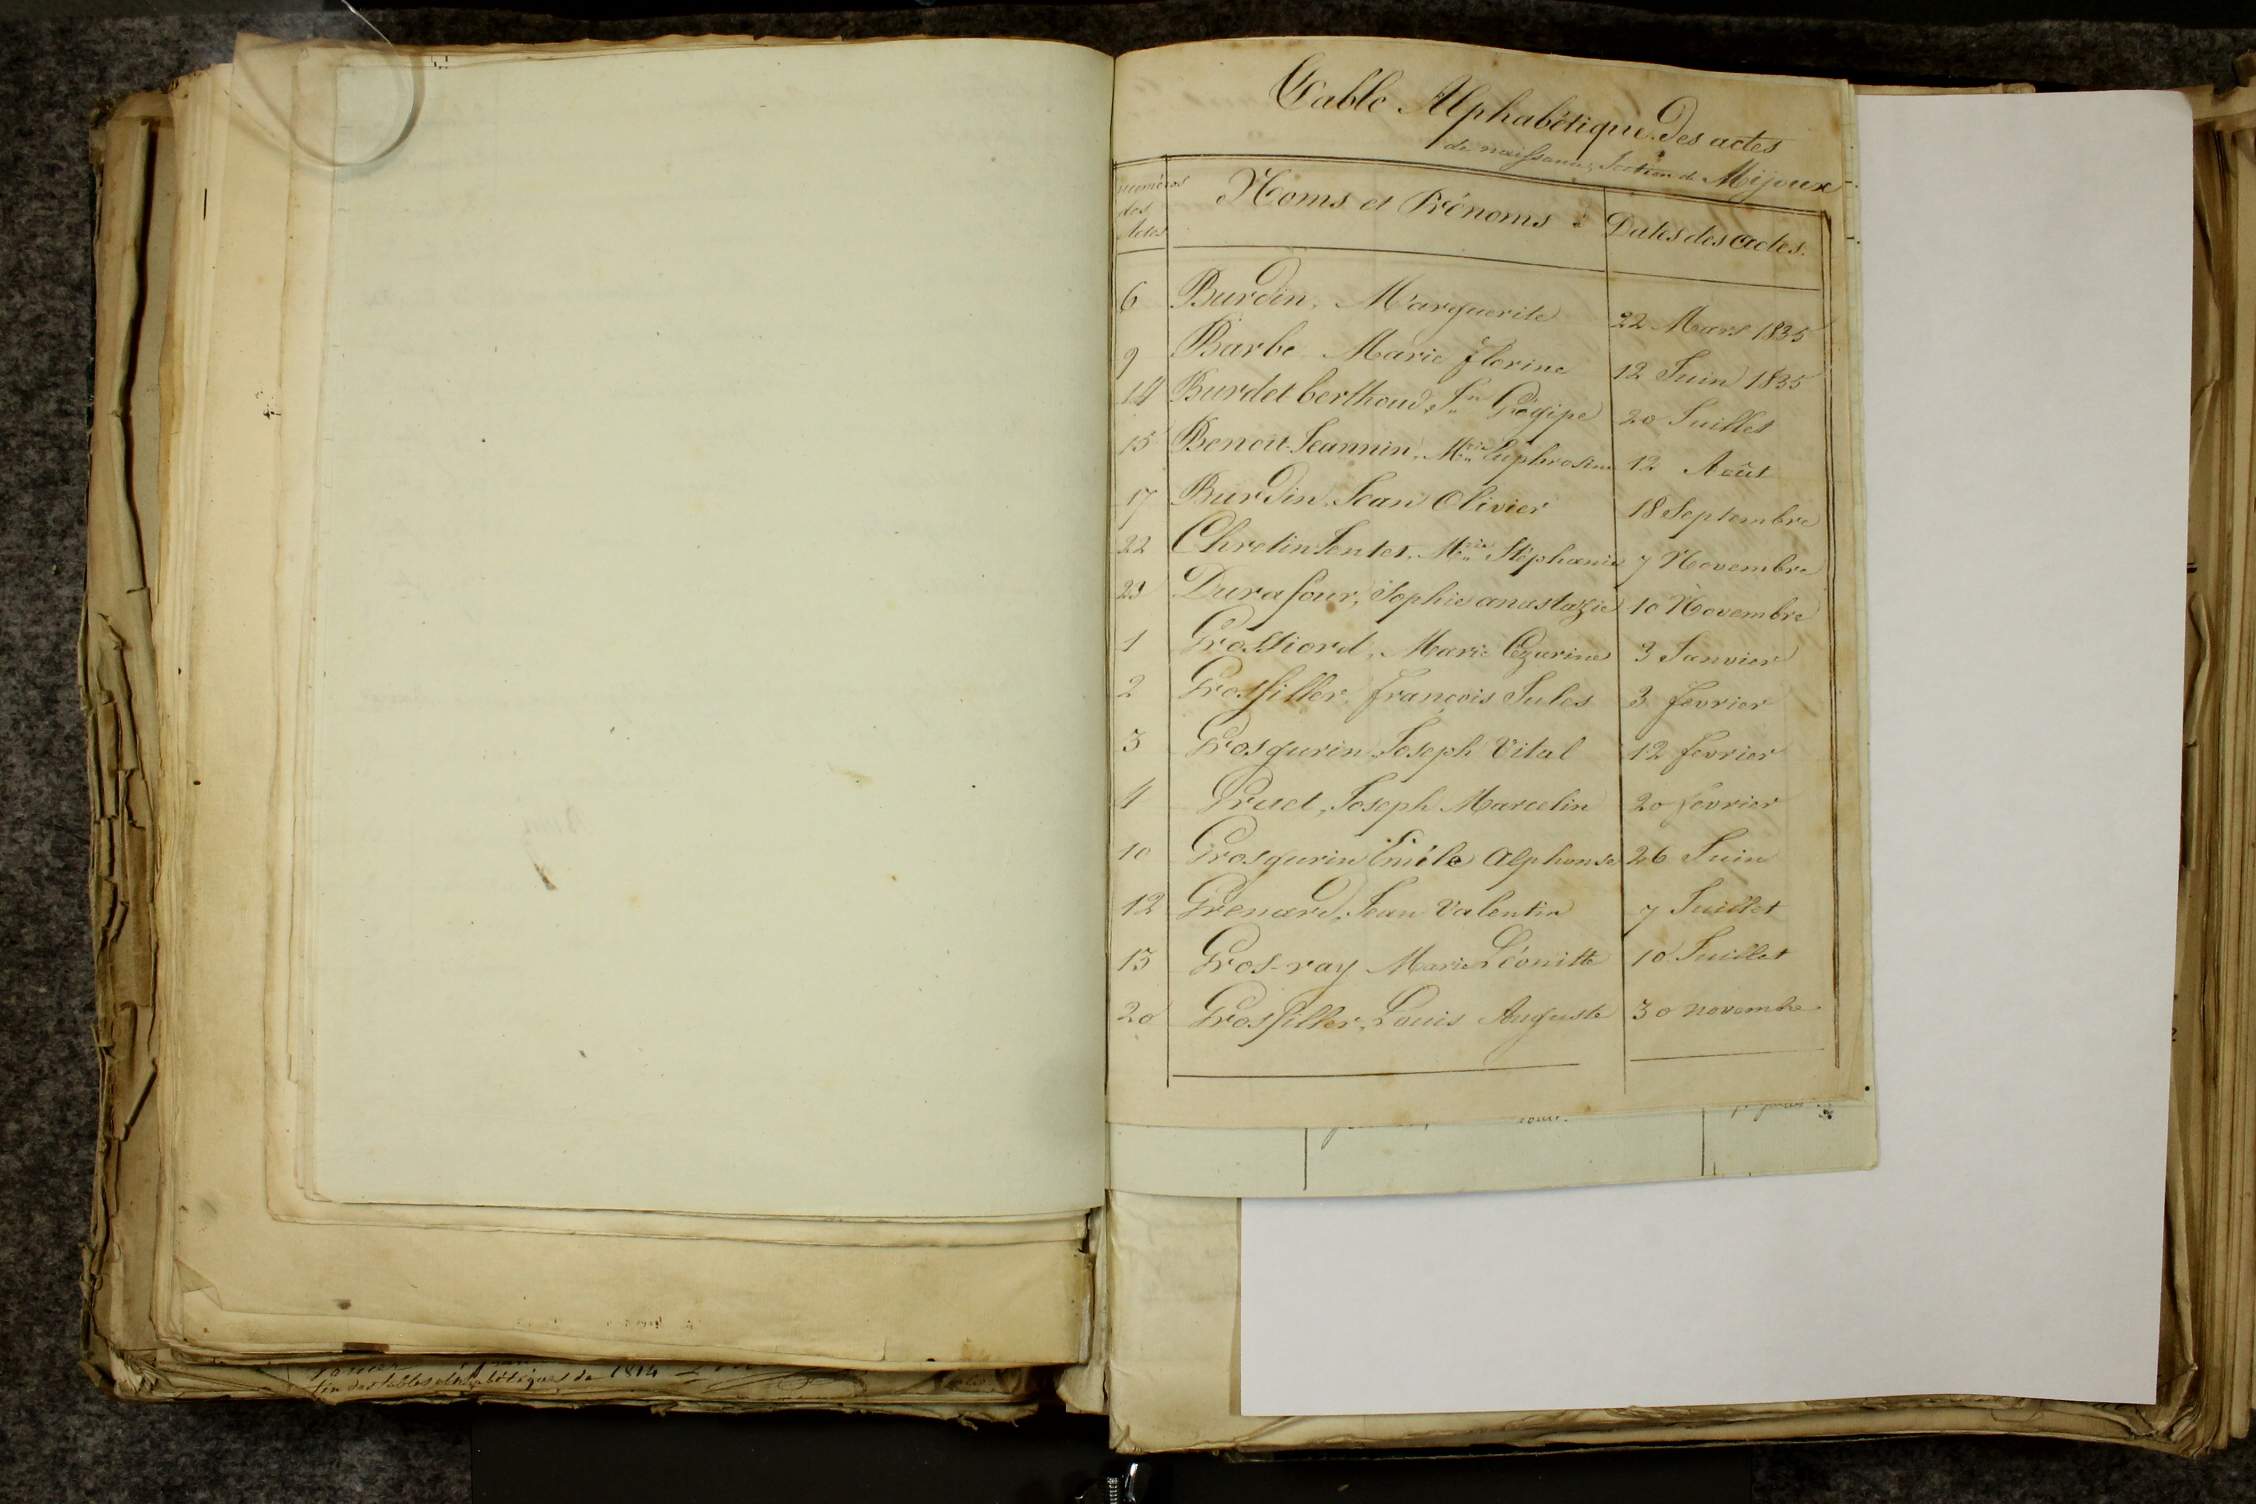 Table Alphabétique Des actes
de naissance, Section de Mijoux
Numéros des actes Noms et Prénoms : Dates des actes.
6 Burdin, Marguerite 22 Mars 1835
9 Barbe Marie florine 12 Juin 1835
14 Burdet berthoud, Jn 20 Juillet
15 Benoit-Jeannin, Mrie Euphrosine 12 Août
17 Burdin, Jean Olivier 18 Septembre
22 Chretin Mrie Stéphanie 7 Novembre
23 Durafour, Sophie anastazie 10 Novembre
1 Grossiord, Marie Cezarine 3 Janvier
2 Grossiller, françois Jules 3 fevrier
3 Grosgurin, Joseph Vital 12 fevrier
4 Gruet, Joseph Marcelin 20 fevrier
10 Grosgurin Emile Alphonse 26 Juin
12 Grenard, Jean Valentin 7 Juillet
13 Gros-ray Marie Léonitte 10 Juillet
20 Grossiller, Louis Auguste 30 novembre
fin des tables alphabétiques de 1814